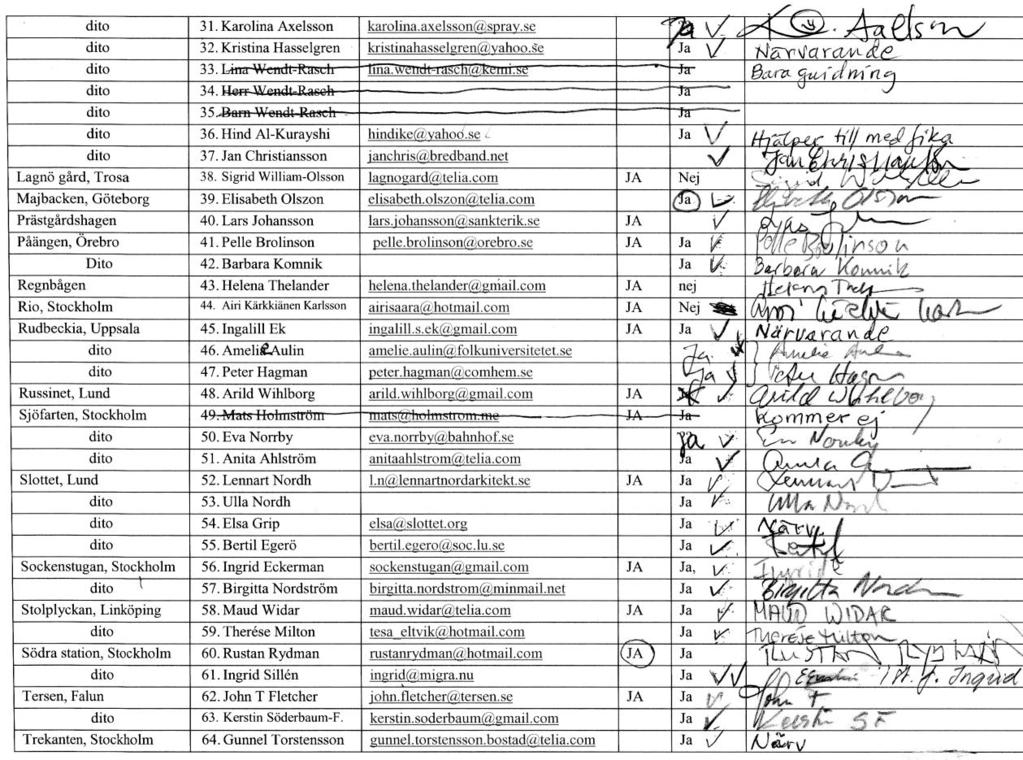 dito 31. Karolina Axelsson karolina.axelsson@spray.se Ja
dito 32. Kristina Hasselgren kristinahasselgren@yahoo.se Ja Närvarande
dito 33. Lina Wendt-Rasch lina.wendt-rasch@kemi.se Ja Bara guidning
dito 34. Herr Wendt-Rasch Ja
dito 35. Barn Wendt-Rasch Ja
dito 36. Hind Al-Kurayshi hindike@yahoo.se Ja Hjälper till med fika
dito 37. Jan Christiansson janchris@bredband.net
Lagnö gård, Trosa 38. Sigrid William-Olsson lagnogard@telia.com JA Nej
Majbacken, Göteborg 39. Elisabeth Olszon elisabeth.olszon@telia.com Ja
Prästgårdshagen 40. Lars Johansson lars.johansson@sankterik.se JA
Påängen, Örebro 41. Pelle Brolinson pelle.brolinson@orebro.se JA Ja Pelle Brolinson
Dito 42. Barbara Komnik Ja Barbara Komnik
Regnbågen 43. Helena Thelander helena.thelander@gmail.com JA nej
Rio, Stockholm 44. Airi Kärkkiänen Karlsson airisaara@hotmail.com JA Nej
Rudbeckia, Uppsala 45. Ingalill Ek ingalill.s.ek@gmail.com JA Ja Närvarande
dito 46. Amelie Aulin amelie.aulin@folkuniversitetet.se Ja
dito 47. Peter Hagman peter.hagman@comhem.se Ja
Russinet, Lund 48. Arild Wihlborg arild.wihlborg@gmail.com JA Arild Wihlborg
Sjöfarten, Stockholm 49. Mats Holmström mats@holmstrom.me JA Ja kommer ej
dito 50. Eva Norrby eva.norrby@bahnhof.se Ja
dito 51. Anita Ahlström anitaahlstrom@telia.com Ja
Slottet, Lund 52. Lennart Nordh l.n@lennartnordarkitekt.se JA Ja
dito 53. Ulla Nordh Ja
dito 54. Elsa Grip elsa@slottet.org Ja Närv.
dito 55. Bertil Egerö bertil.egero@soc.lu.se Ja
Sockenstugan, Stockholm 56. Ingrid Eckerman sockenstugan@gmail.com JA Ja,
dito 57. Birgitta Nordström birgitta.nordstrom@minmail.net Ja Birgitta
Stolplyckan, Linköping 58. Maud Widar maud.widar@telia.com JA Ja MAUD WIDAR
dito 59. Therése Milton tesa_eltvik@hotmail.com Ja Therése Milton
Södra station, Stockholm 60. Rustan Rydman rustanrydman@hotmail.com JA Ja RUSTAN RYDMAN
dito 61. Ingrid Sillén ingrid@migra.nu Ja Ingrid
Tersen, Falun 62. John T Fletcher john.fletcher@tersen.se JA Ja John F
dito 63. Kerstin Söderbaum-F. kerstin.soderbaum@gmail.com Ja Kerstin S F
Trekanten, Stockholm 64. Gunnel Torstensson gunnel.torstensson.bostad@telia.com Ja Närv